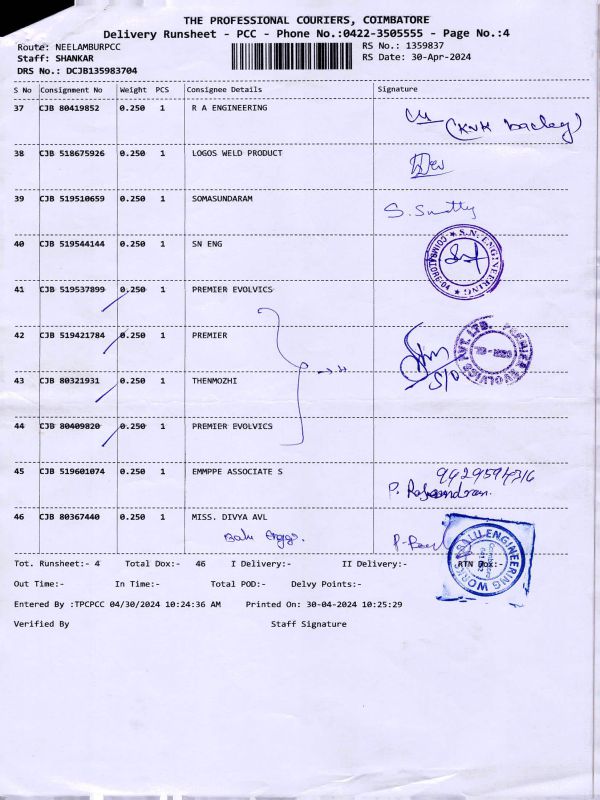 THE PROFESSIONAL COURIERS, COIMBATORE
Delivery Runsheet - PCC - Phone No.:0422-3505555 - Page No.:4
Route: NEELAMBURPCC RS No.: 1359837
Staff: SHANKAR RS Date: 30-Apr-2024
DRS No.: DCJB135983704
S No Consignment No Weight PCS Consignee Details Signature
37 CJB 80419852 0.250 1 R A ENGINEERING
38 CJB 518675926 0.250 1 LOGOS WELD PRODUCT
39 CJB 519510659 0.250 1 SOMASUNDARAM
40 CJB 519544144 0.250 1 SN ENG
S.N. ENGINEERING
41 CJB 519537899 0.250 1 PREMIER EVOLVICS
42 CJB 519421784 0.250 1 PREMIER
PREMIER EVOLVICS PVT. LTD.
43 CJB 80321931 0.250 1 THENMOZHI
44 CJB 80409820 0.250 1 PREMIER EVOLVICS
45 CJB 519601074 0.250 1 EMMPPE ASSOCIATE S
P. Rajeandran.
46 CJB 80367440 0.250 1 MISS. DIVYA AVL
Balu Enggs.
BALU ENGINEERING WORKS
Tot. Runsheet:- 4 Total Dox:- 46 I Delivery:- II Delivery:- RTN Dox:-
Out Time:- In Time:- Total POD:- Delvy Points:-
Entered By :TPCPCC 04/30/2024 10:24:36 AM Printed On: 30-04-2024 10:25:29
Verified By Staff Signature